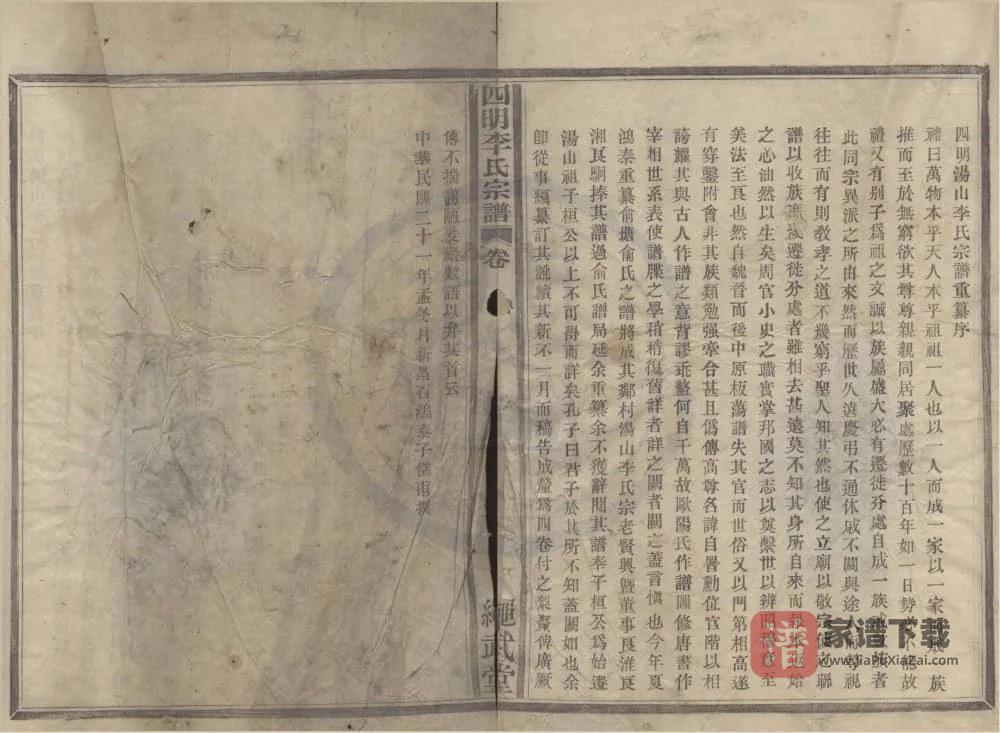 四明湯山李氏宗譜重纂序
禮曰萬物本乎天人本乎祖祖一人也以一人而成一家以一家而成一族
推而至於無窮欲其尊尊親親同居聚處歷數十百年如一日勢必不能故
禮又有別子爲祖之文誠以族屬盛大必有遷徙分處自成一族者
此同宗異派之所由來然而歷世久遠慶弔不通休戚不關與途人相視
往往而有則敎孝之道不幾窮乎聖人知其然也使之立廟以敬宗使之聯
譜以收族遷徙分處者雖相去甚遠莫不知其身所自來而報本返始
之心油然以生矣周官小史之職實掌邦國之志以奠繫世以辨昭穆意至
美法至良也然自魏晉而後中原板蕩譜失其官而世俗又以門第相高遂
有穿鑿附會非其族類勉强牽合甚且僞傳高尊名諱自署勳位官階以相
誇耀其與古人作譜之意背謬乖盭何自千萬故歐陽氏作譜圖修唐書作
宰相世系表使譜牒之學稍稍復舊詳者詳之闕者闕之蓋言愼也今年夏
鴻泰重纂俞塘俞氏之譜將成其鄰村湯山李氏宗老賢興暨董事良淮良
湘良駉捧其譜過俞氏譜局延余重纂余不獲辭閱其譜奉子桓公爲始遷
湯山祖子桓公以上不可得而詳矣孔子曰君子於其所不知蓋闕如也余
卽從事編纂訂其訛續其新不一月而稿告成釐爲四卷付之梨棗俾廣厥
四明李氏宗譜
卷
繩武堂
傳不揣譾陋爰綴數語以弁其首云
中華民國二十一年孟冬月新昌石鴻泰子僊甫撰
譜
家谱下载
www.jiaPuXiaZai.com